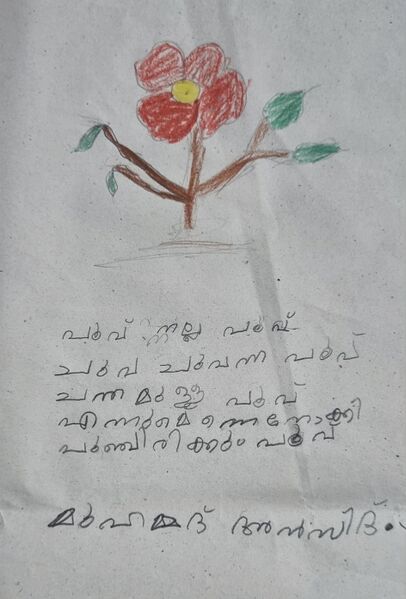 പൂവ് നല്ല പൂവ്
ചുവ ചുവന്ന പൂവ്
ചന്തമുള്ള പൂവ്
എന്നുമെന്നെനോക്കി
പുഞ്ചിരിക്കും പൂവ്
മുഹമ്മദ് അൻസിദ്.